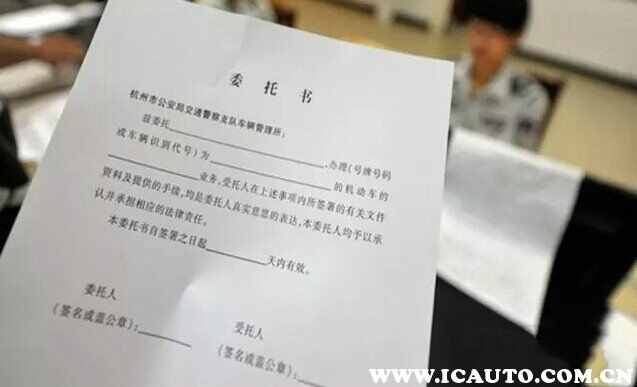 委托书
杭州市公安局交通警察支队车辆管理所：
兹委托____________________,办理(号牌号码
或车辆识别代号)为____________________的机动车的
____________________业务,受托人在上述事项内所签署的有关文件
资料及提供的手续,均是委托人真实意思的表达,本委托人均予以承
认并承担相应的法律责任。
本委托书自签署之日起__________天内有效。
委托人
(签名或盖公章):__________
受托人
(签名或盖公章):__________
WWW.ICAUTO.COM.CN